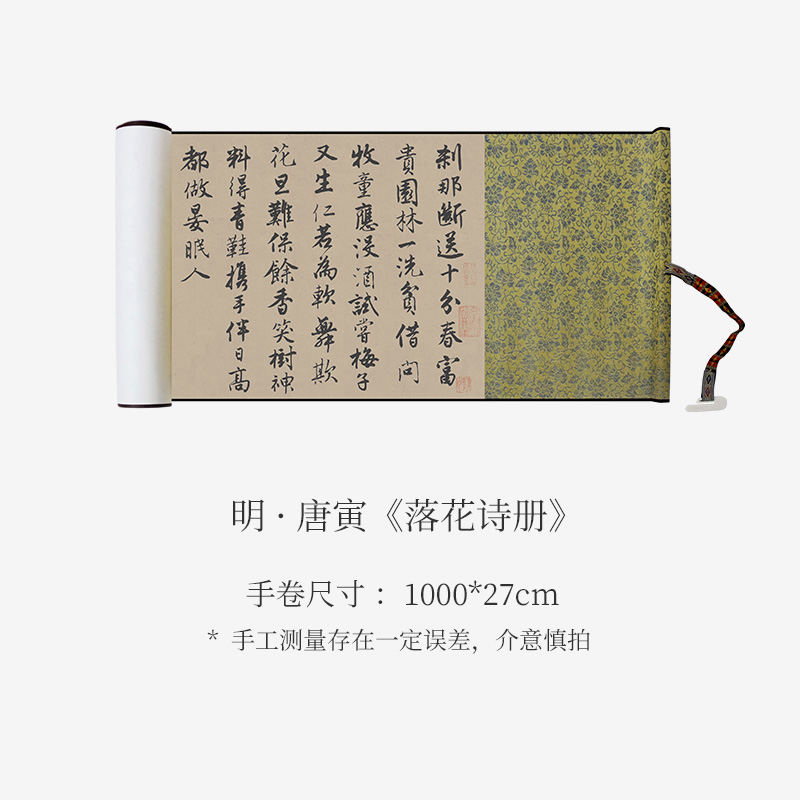 刹那斷送十分春富
貴園林一洗貧借問
牧童應没酒試嘗梅子
又生仁若為軟舞欺
花旦難保餘香笑樹神
料得青鞋携手伴日高
都做晏眠人
明·唐寅《落花诗册》
手卷尺寸：1000*27cm
* 手工测量存在一定误差，介意慎拍